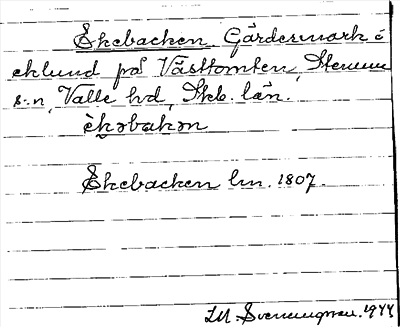 Ekebacken, Gärdesmark &
eklund på Västtomten, Stenum
s:n, Valle hd, Skb. län.
èkəbakən
Ekebacken lm. 1807.
I.M. Svenungsson. 1944